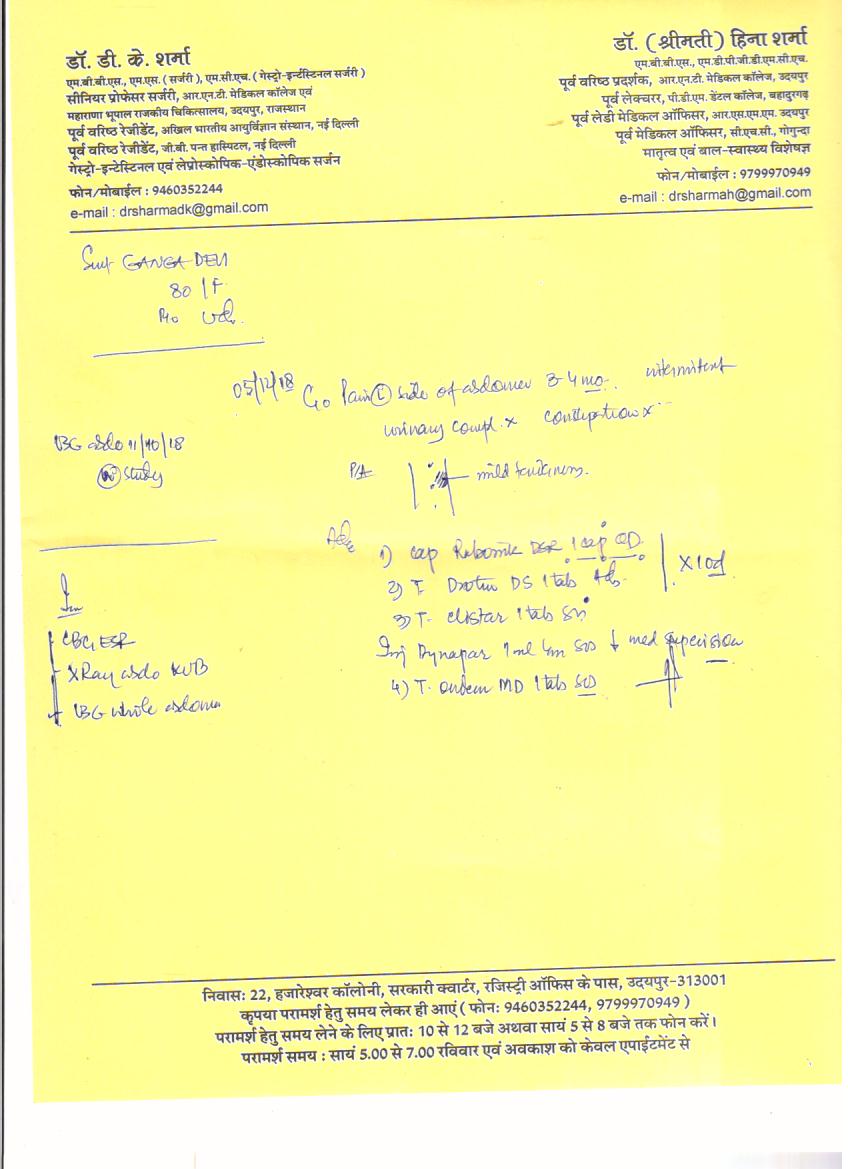 डॉ. डी. के. शर्मा
एम.बी.बी.एस., एम.एस. ( सर्जरी ), एम.सी.एच. ( गेस्ट्रो-इन्टेंस्टिनल सर्जरी )
सीनियर प्रोफेसर सर्जरी, आर.एन.टी. मेडिकल कॉलेज एवं
महाराणा भूपाल राजकीय चिकित्सालय, उदयपुर, राजस्थान
पूर्व वरिष्ठ रेजीडेंट, अखिल भारतीय आयुर्विज्ञान संस्थान, नई दिल्ली
पूर्व वरिष्ठ रेजीडेंट, जी.बी. पन्त हास्पिटल, नई दिल्ली
गेस्ट्रो-इन्टेस्टिनल एवं लेप्रोस्कोपिक-एंडोस्कोपिक सर्जन
फोन/मोबाईल : 9460352244
e-mail : drsharmadk@gmail.com
डॉ. ( श्रीमती ) हिना शर्मा
एम.बी.बी.एस., एम.डी.पी.जी.डी.एम.सी.एच.
पूर्व वरिष्ठ प्रदर्शक, आर.एन.टी. मेडिकल कॉलेज, उदयपुर
पूर्व लेक्चरर, पी.डी.एम. डेंटल कॉलेज, बहादुरगढ़
पूर्व लेडी मेडिकल ऑफिसर, आर.एस.एम.एम. उदयपुर
पूर्व मेडिकल ऑफिसर, सी.एच.सी., गोगुन्दा
मातृत्व एवं बाल-स्वास्थ्य विशेषज्ञ
फोन/मोबाईल : 9799970949
e-mail : drsharmah@gmail.com
Smt GANGA DEVI
80 / F
R/o Ud.
05/12/18 C/o Pain (L) side of abdomen 4 mo. intermittent
urinary compl. x constipation x
USG abdo 11/10/18
(N) study
P/A mild tenderness.
Adv 1) Cap DSR 1 cap OD
2) T. Drotin DS 1 tab x 10d
3) T. 1 tab
Inj Dynapar 1 ml Im SOS ↓ med supervision
4) T. Ondem MD 1 tab SOS
Inv
CBC, ESR
X Ray abdo KUB
USG whole abdomen
निवासः 22, हजारेश्वर कॉलोनी, सरकारी क्वार्टर, रजिस्ट्री ऑफिस के पास, उदयपुर-313001
कृपया परामर्श हेतु समय लेकर ही आएं ( फोनः 9460352244, 9799970949 )
परामर्श हेतु समय लेने के लिए प्रातः 10 से 12 बजे अथवा सायं 5 से 8 बजे तक फोन करें।
परामर्श समय : सायं 5.00 से 7.00 रविवार एवं अवकाश को केवल एपाईटमेंट से